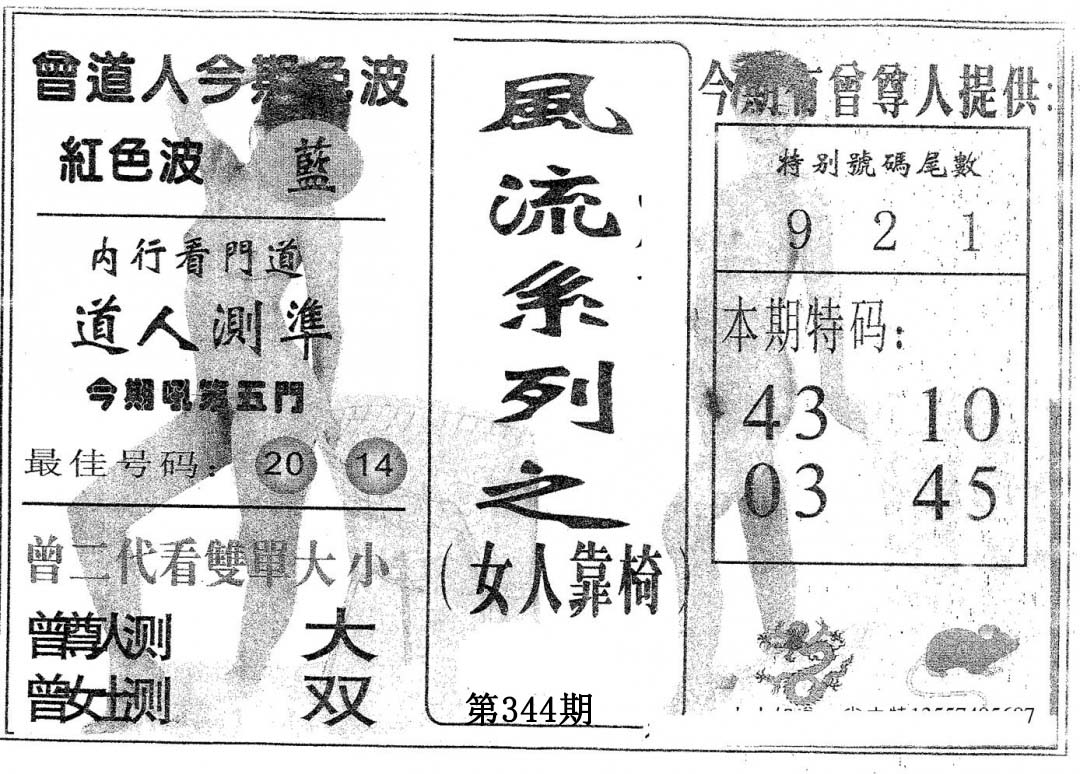 曾道人今期色波
紅色波 藍
内行看門道
道人測準
今期吼第五門
最佳号码：20 14
曾二代看雙單大小
曾尊人测 大
曾女士测 双
風流系列之
（女人靠椅）
第344期
今期有曾尊人提供：
特别號碼尾數
9 2 1
本期特码：
43 10
03 45